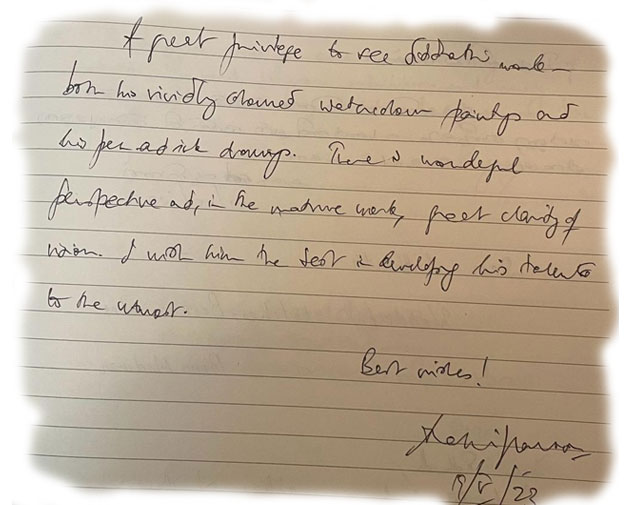 A great privilege to see Siddharth's work –
both his vividly coloured watercolour paintings and
his pen and ink drawings. There is wonderful
perspective and, in the mature work, great clarity of
vision. I wish him the best in developing his talents
to the utmost.
Best wishes!